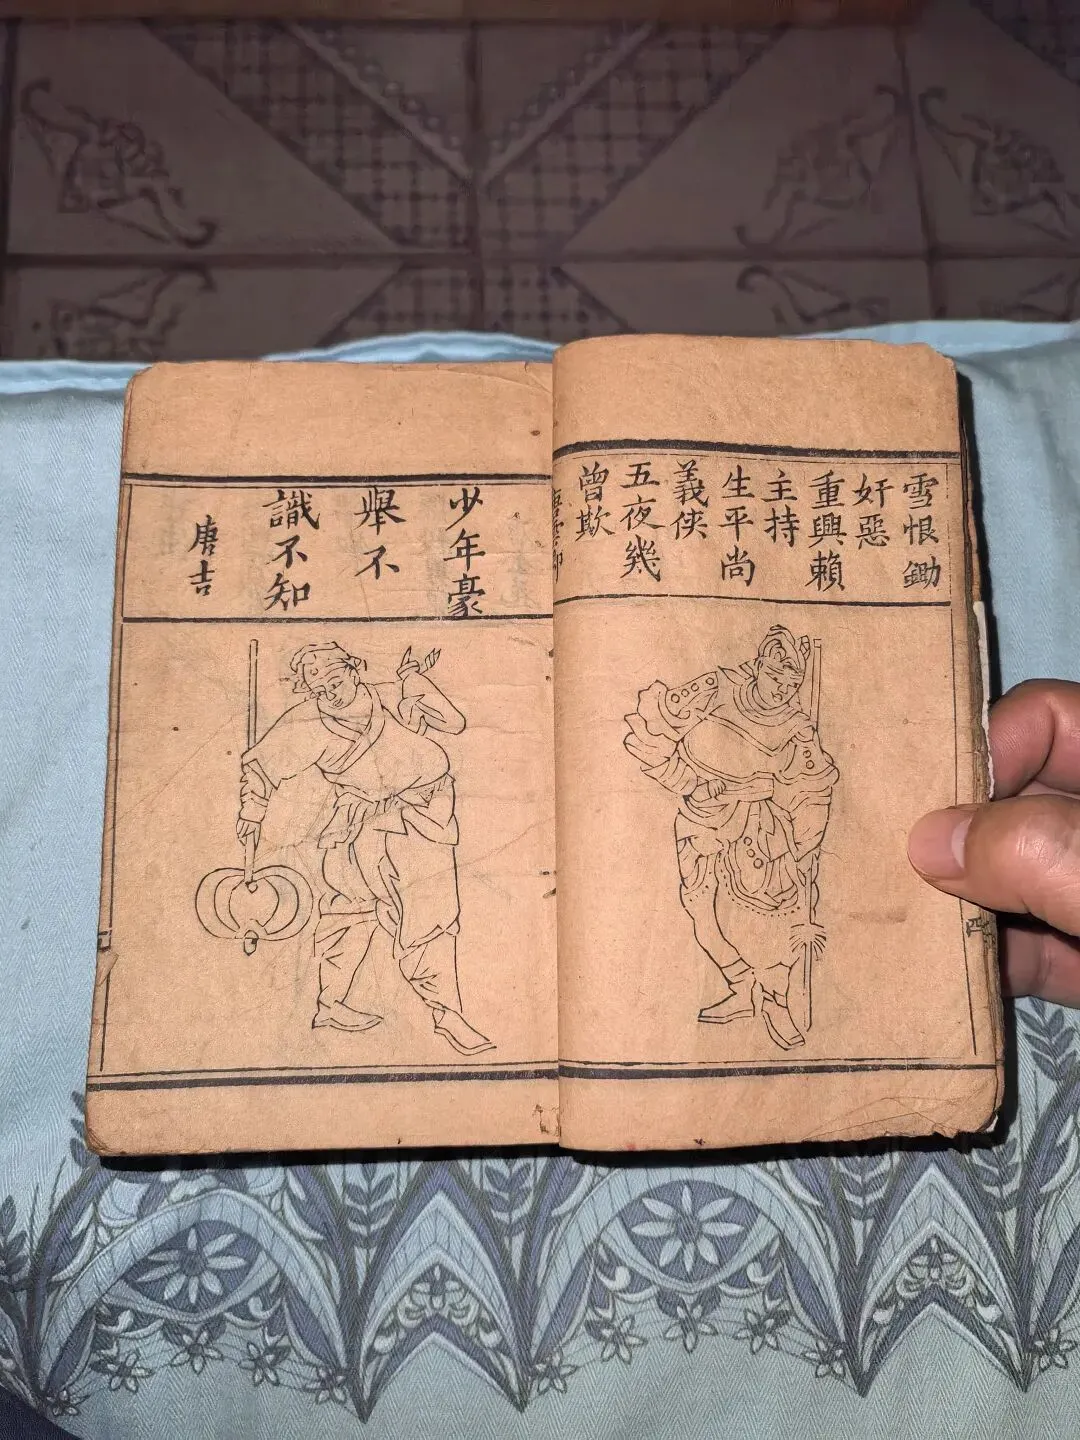 雪恨鋤
奸惡
重興賴
主持
生平尚
義俠
五夜幾
曾欺
少年豪
舉不
識不知
唐吉